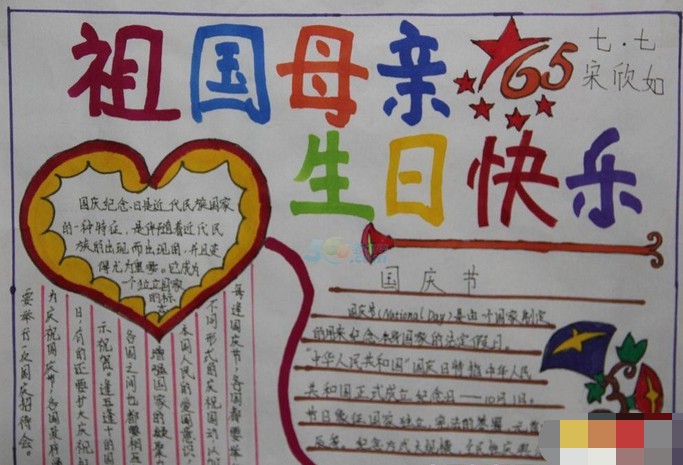 祖国母亲
65
七·七
宋欣如
生日快乐
国庆纪念日是近代民族国家
的一种特征，是伴随着近代民
族的出现而出现的，并且变
得尤为重要。它成为
一个独立国家
的标
志
国庆节
国庆节(National Day)是由一个国家制定
的用来纪念本身国家的法定假日
"中华人民共和国"国庆日特指中华人民
共和国正式成立纪念日——10月1日。
节日象征国家独立，宪法的签署，元首
每逢国庆节，各国都要举
不同形式的庆祝活动，以加
本国人民的爱国意识，
增强国家的凝聚力
各国之间也都要相互
示祝贺。逢五逢十的国
日，有的还要扩大庆祝
为庆祝国庆节，各国政府
要举行一次国庆招待会。